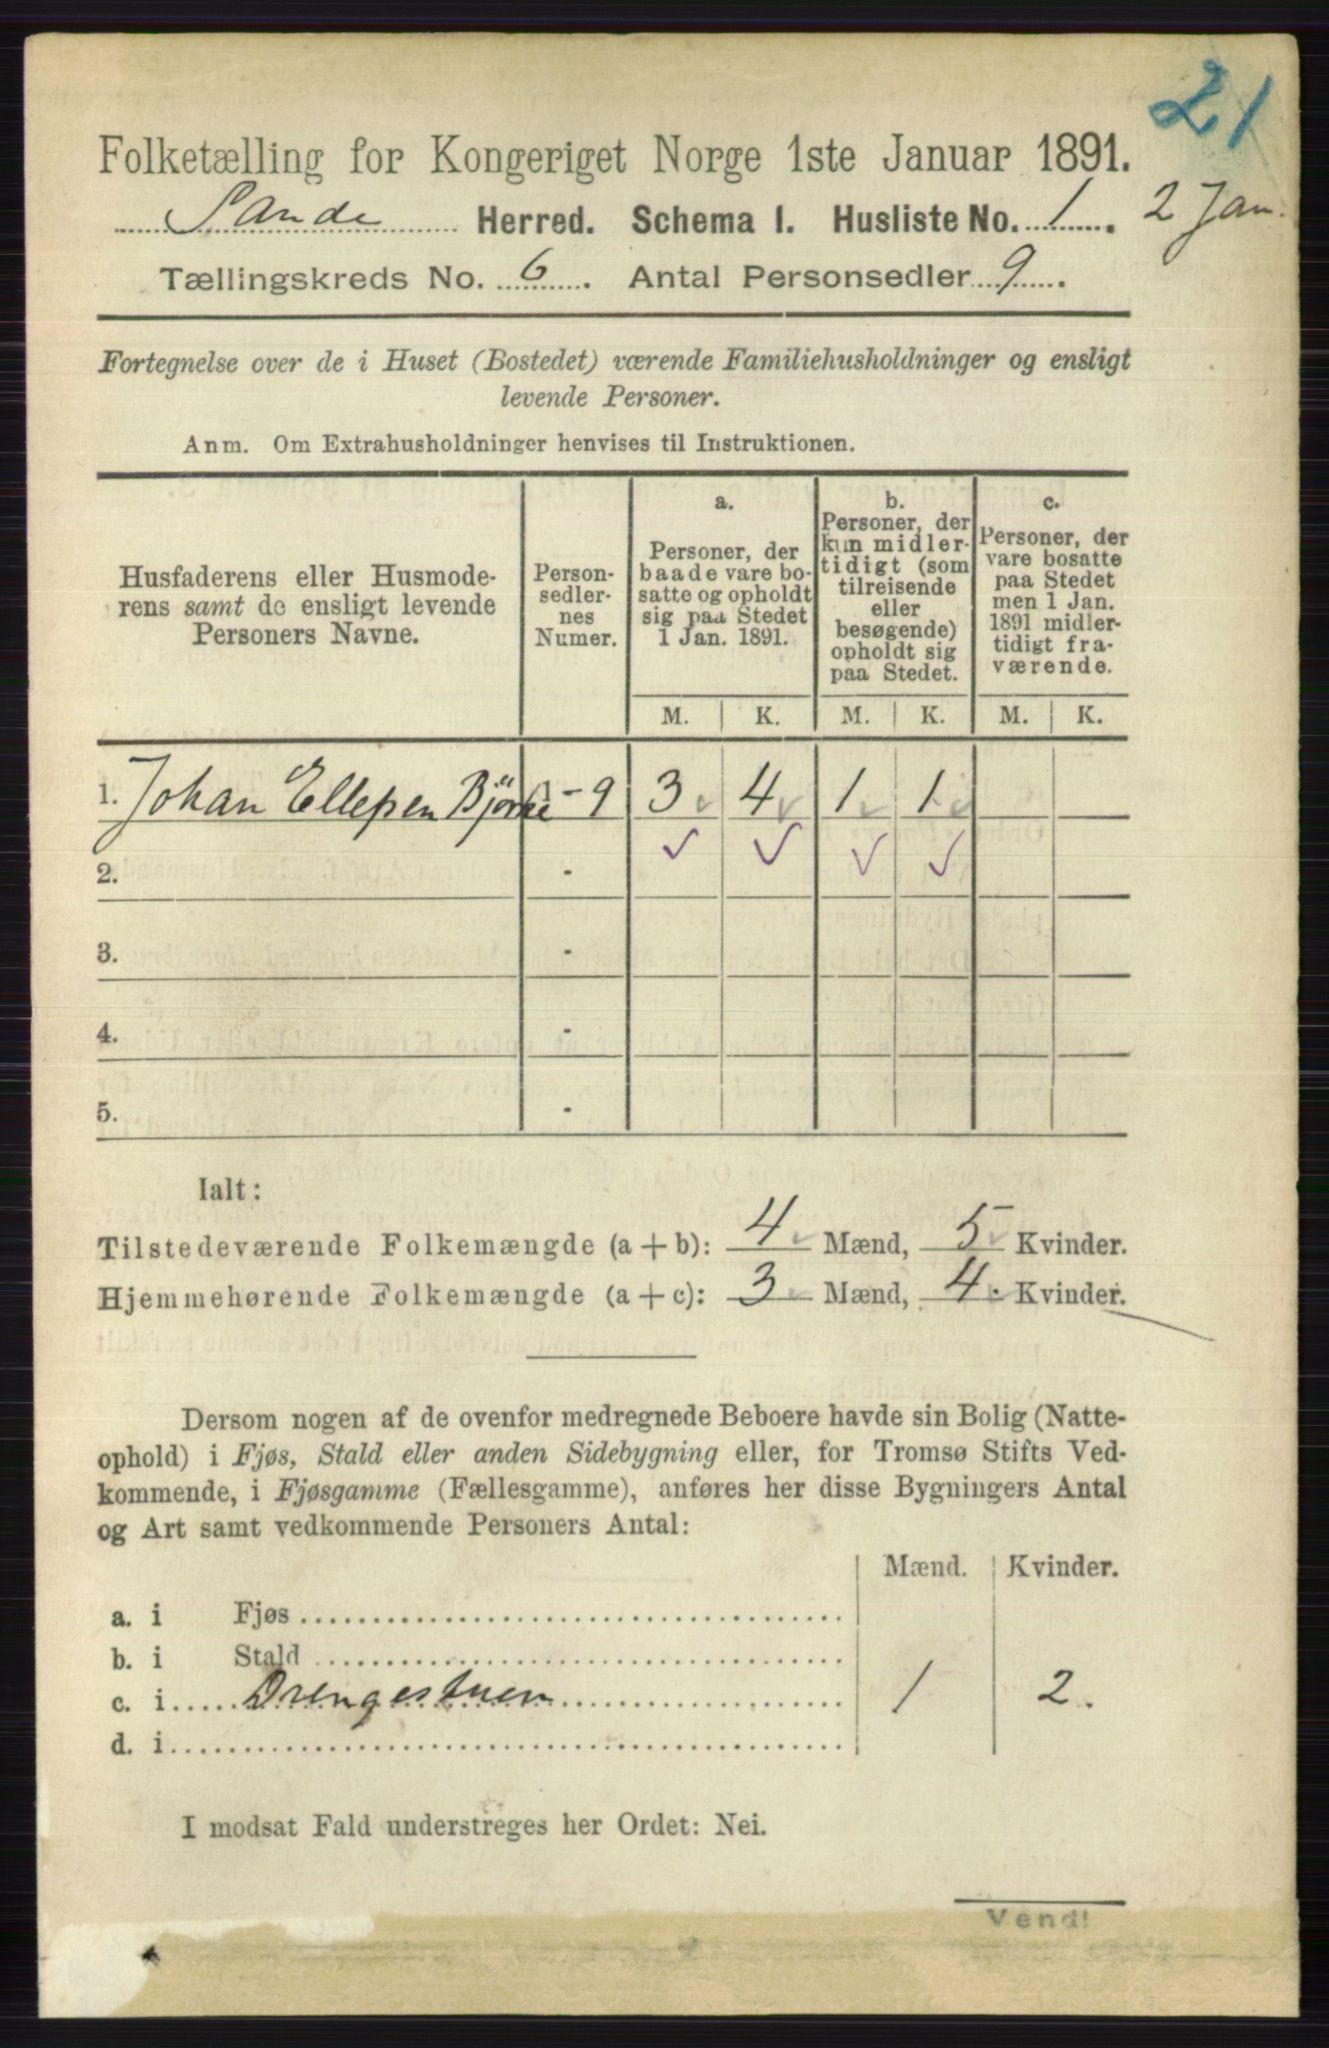 21
Folketælling for Kongeriget Norge 1ste Januar 1891.
Sande Herred. Schema 1. Husliste No. 1. 2 Jan.
Tællingskreds No. 6. Antal Personsedler 9.
Fortegnelse over de i Huset (Bostedet) værende Familiehusholdninger og ensligt
levende Personer.
Anm. Om Extrahusholdninger henvises til Instruktionen.
Husfaderens eller Husmode-
rens samt de ensligt levende
Personers Navne.
Person-
sedler-
nes
Numer.
a.
Personer, der
baade vare bo-
satte og opholdt
sig paa Stedet
1 Jan. 1891.
b.
Personer, der
kun midler-
tidigt (som
tilreisende
eller
besøgende)
opholdt sig
paa Stedet.
c.
Personer, der
vare bosatte
paa Stedet
men 1 Jan.
1891 midler-
tidigt fra-
værende.
M. K. M. K. M. K.
1. Johan Ellefsen Bjørke 1-9 3 4 1 1
2. -
3. -
4. -
5. -
Ialt:
Tilstedeværende Folkemængde (a+b): 4 Mænd, 5 Kvinder.
Hjemmehørende Folkemængde (a+c): 3 Mænd, 4 Kvinder.
Dersom nogen af de ovenfor medregnede Beboere havde sin Bolig (Natte-
ophold) i Fjøs, Stald eller anden Sidebygning eller, for Tromsø Stifts Ved-
kommende, i Fjøsgamme (Fællesgamme), anføres her disse Bygningers Antal
og Art samt vedkommende Personers Antal:
Mænd. Kvinder.
a. i Fjøs
b. i Stald
c. i Drengestuen 1 2.
d. i
I modsat Fald understreges her Ordet: Nei.
Vend!